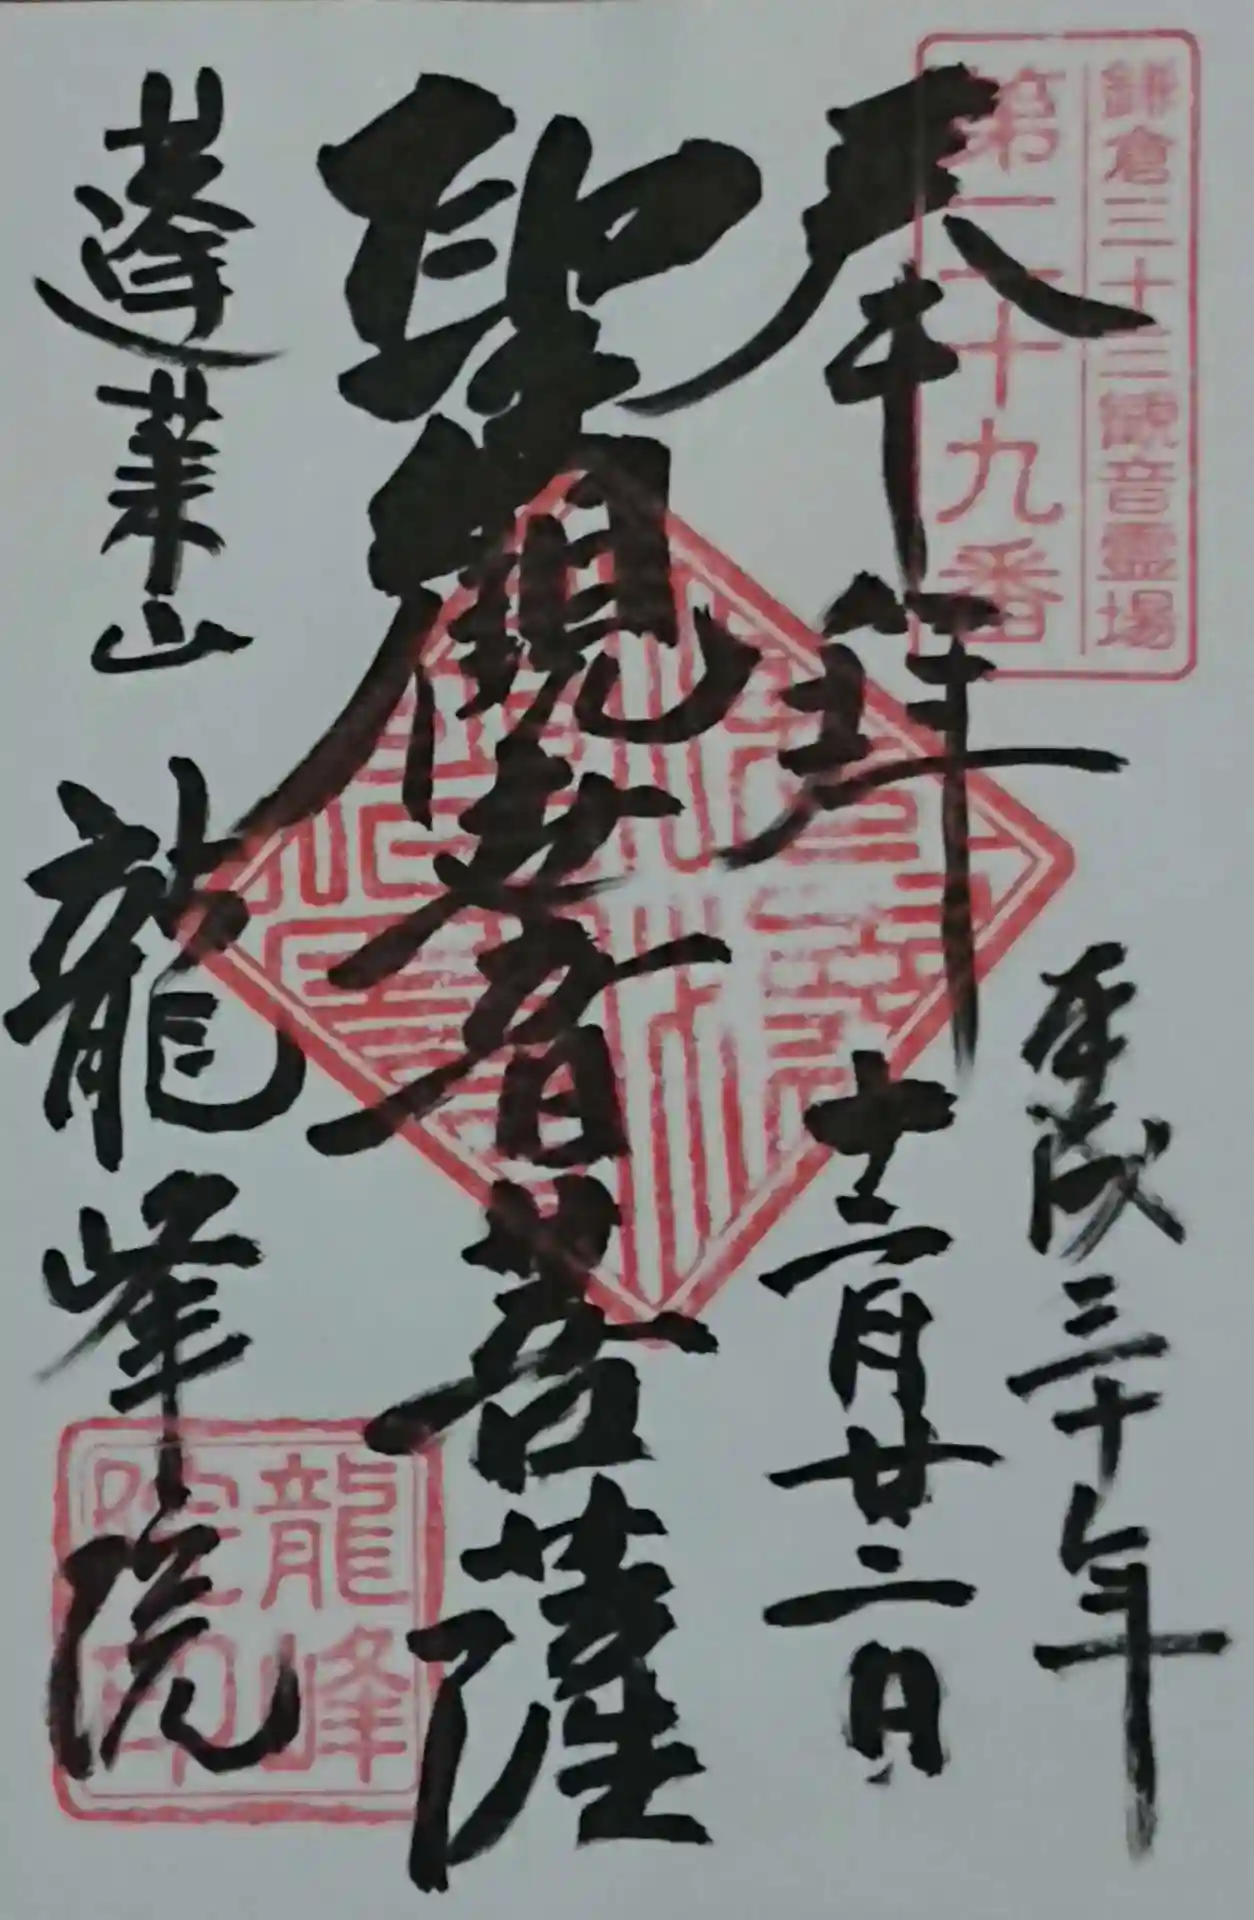 鎌倉三十三観音霊場
第二十九番
奉拝
平成三十年
十二月廿二日
聖觀世音菩薩
蓬莱山
龍峰院
龍峰
院印